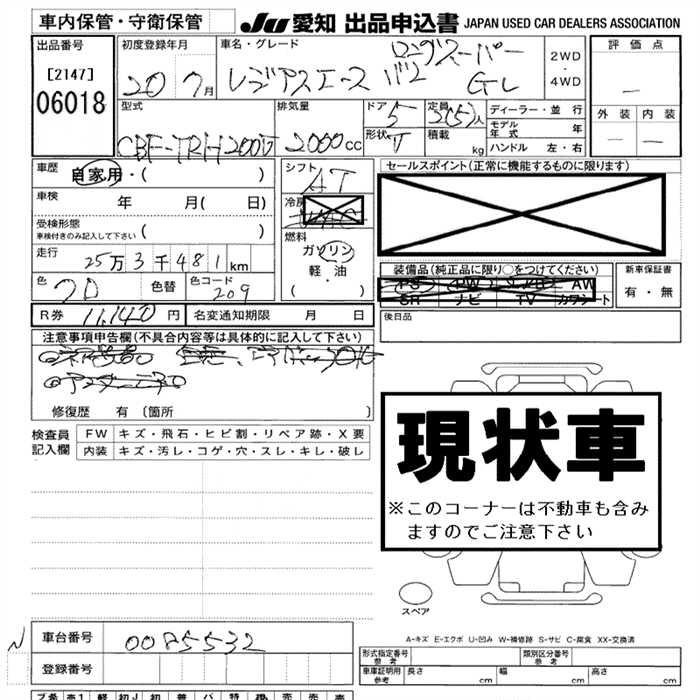 車内保管・守衛保管
JU 愛知 出品申込書 JAPAN USED CAR DEALERS ASSOCIATION
出品番号
[2147]
06018
初度登録年月
20 7月
車名・グレード
ロングスーパー
レジアスエース バン GL
2WD
・
4WD
評価点
—
外装 内装
— —
型式
CBF-TRH200V
排気量
2000cc
ドア
5
形状 V
定員
2(5)人
積載
kg
ディーラー・並行
モデル年式 年
ハンドル 左・右
車歴
自家用・( )
車検 年 月( 日)
受検形態
車検付きのみ記入して下さい ( )
走行 25万3千481km
色 色替 色コード 209
シフト
AT
冷房
燃料
ガソリン
軽・油
( ・ )
セールスポイント(正常に機能するものに限ります)
装備品(純正品に限り○をつけてください)
PS PW AW
SR ナビ TV カワシート
新車保証書
有・無
R券 11,140円 名変通知期限 月 日
後日品
注意事項申告欄(不具合内容等は具体的に記入して下さい)
修復歴 有〔箇所 〕
検査員記入欄
FW キズ・飛石・ヒビ割・リペア跡・X要
内装 キズ・汚レ・コゲ・穴・スレ・キレ・破レ
現状車
※このコーナーは不動車も含みますのでご注意下さい
スペア
A-キズ E-エクボ U-凹み W-補修跡 S-サビ C-腐食 XX-交換済
車台番号 0085532
登録番号
形式指定番号 参考
類別区分番号 参考
車庫証明用 参考 長さ cm 幅 cm 高さ cm